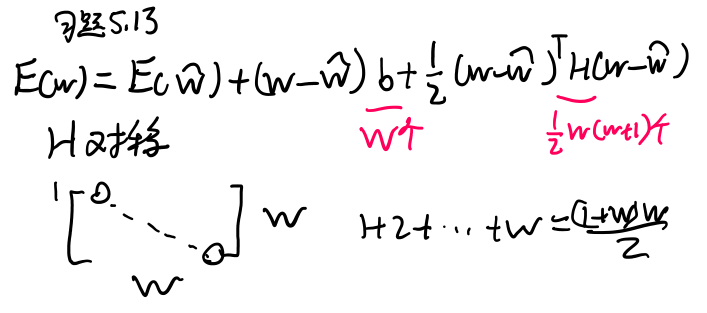 习题5.13
E(w) = E(ŵ) + (w-ŵ) b + 1/2 (w-ŵ)ᵀH(w-ŵ)
W个 1/2 w(w+1)个
H 对称
1 [ 0 0 ] W
W
1+2+⋯+w = (1+w)w/2